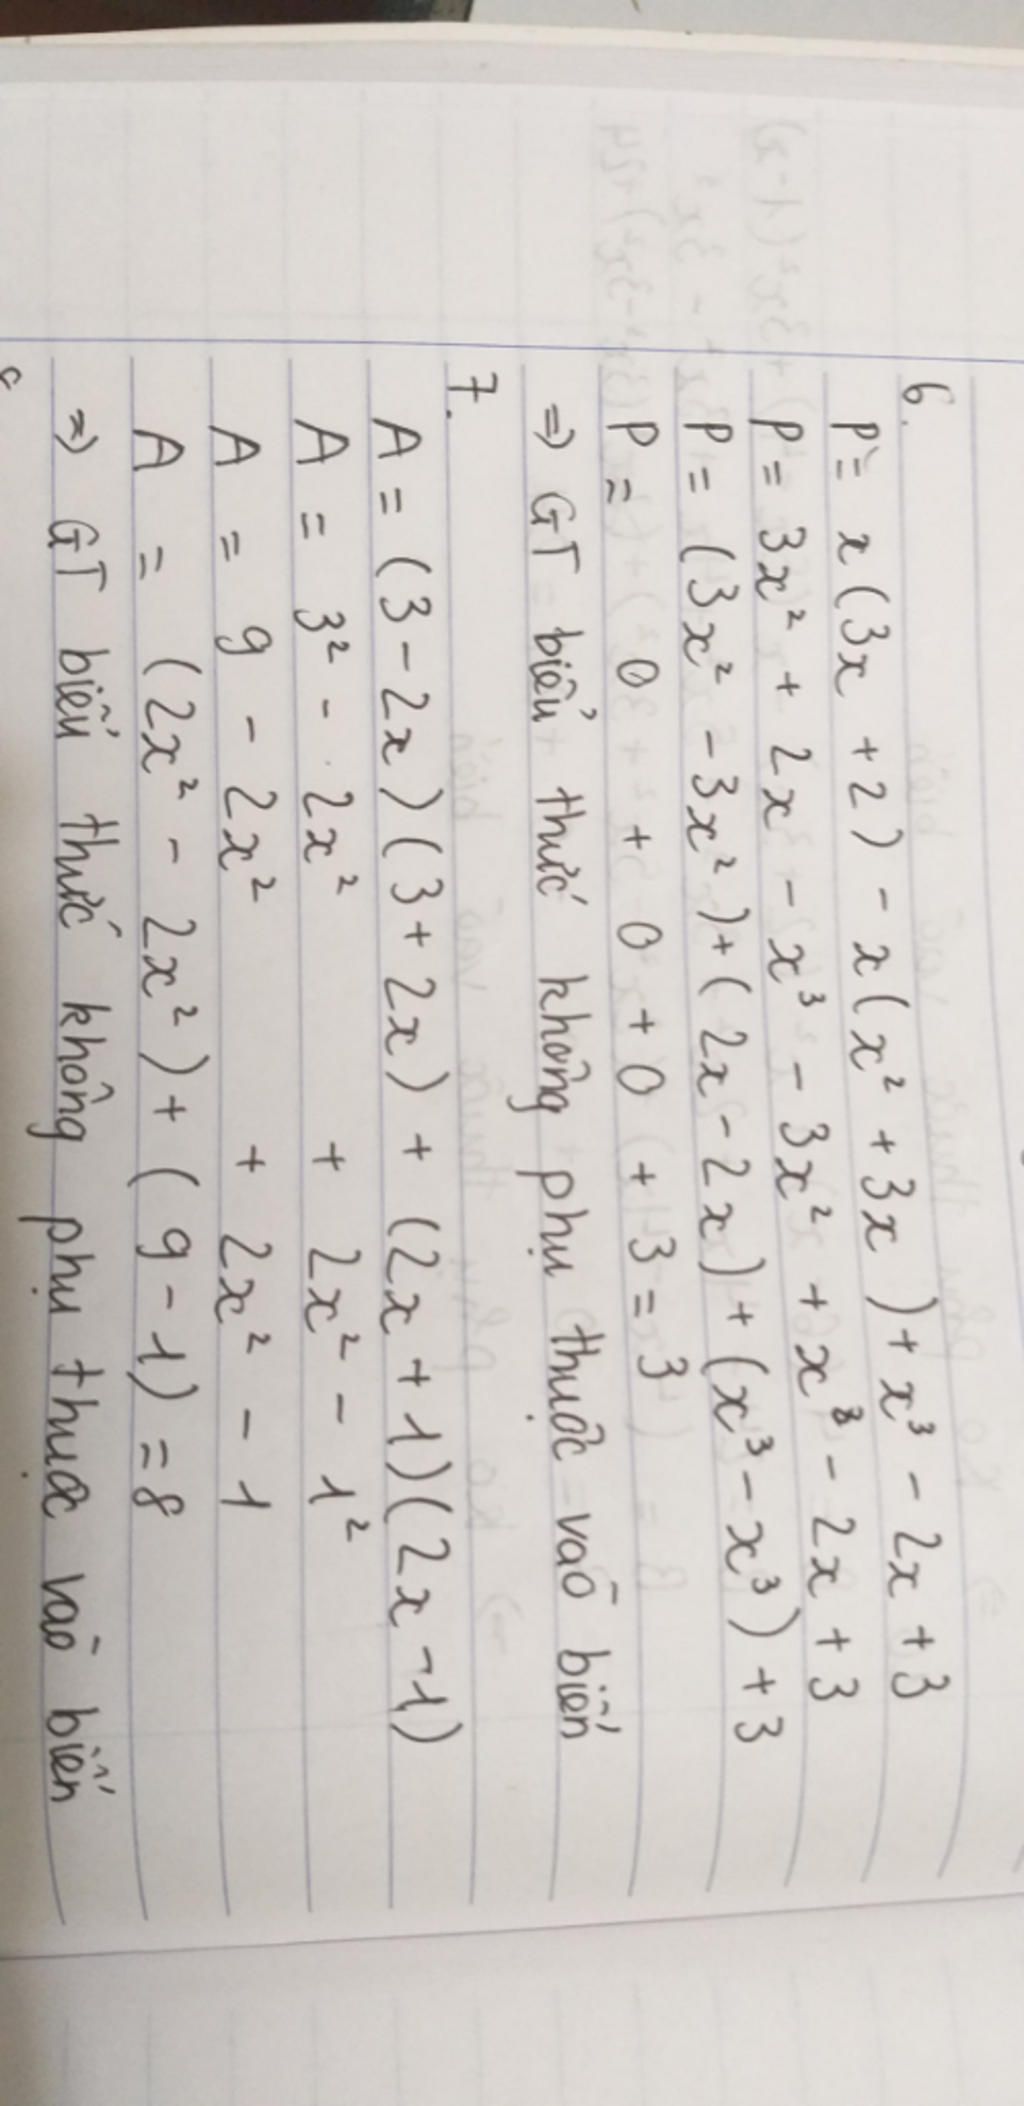 6.
P = x(3x + 2) - x(x² + 3x) + x³ - 2x + 3
P = 3x² + 2x - x³ - 3x² + x³ - 2x + 3
P = (3x² - 3x²) + (2x - 2x) + (x³ - x³) + 3
P = 0 + 0 + 0 + 3 = 3
=> GT biểu thức không phụ thuộc vào biến
7.
A = (3 - 2x)(3 + 2x) + (2x + 1)(2x - 1)
A = 3² - 2x² + 2x² - 1²
A = 9 - 2x² + 2x² - 1
A = (2x² - 2x²) + (9 - 1) = 8
=> GT biểu thức không phụ thuộc vào biến